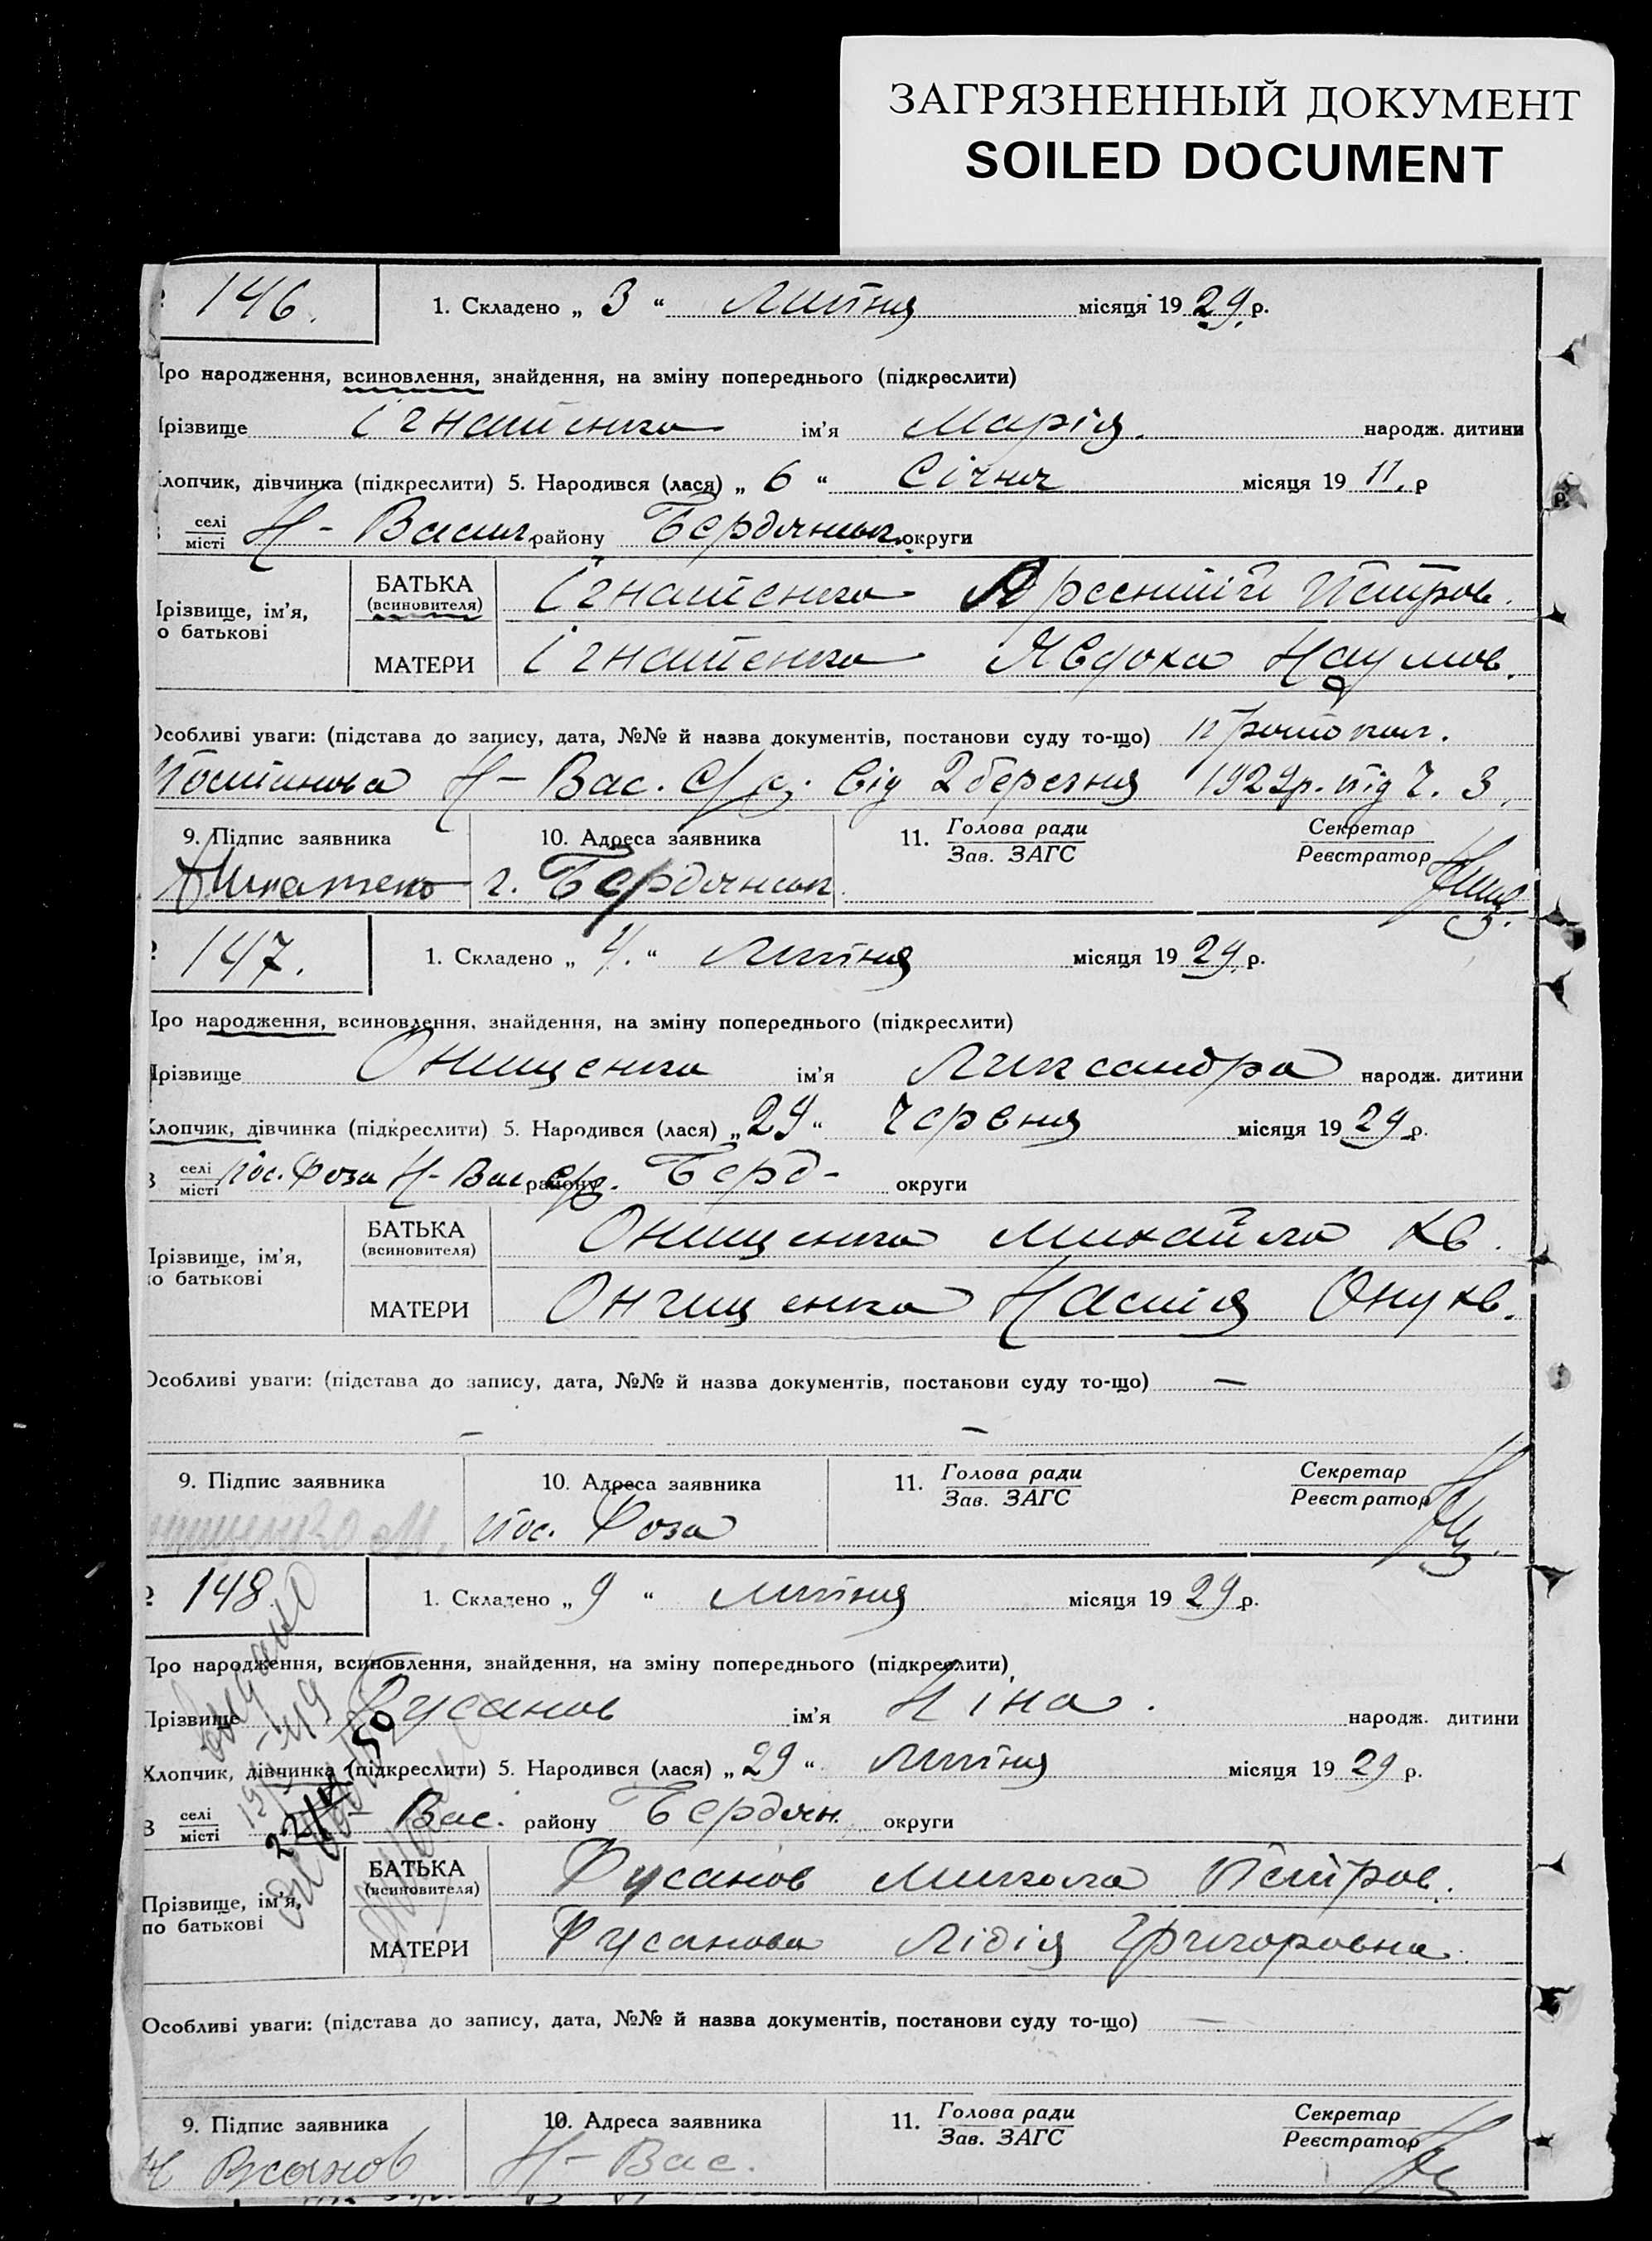 ЗАГРЯЗНЕННЫЙ ДОКУМЕНТ
SOILED DOCUMENT
146. 1. Складено „ 3 “ Липня місяця 19 29 р.
Про народження, всиновлення, знайдення, на зміну попереднього (підкреслити)
Прізвище Ігнатенко ім'я Марія. народж. дитини
Хлопчик, дівчинка (підкреслити) 5. Народився (лася) „ 6 “ Січня місяця 19 11. р
селі
місті Н- Васил. району Бердянськ. округи
Прізвище, ім'я,
по батькові
БАТЬКА
(всиновителя) Ігнатенко Арсентій Петров.
МАТЕРИ Ігнатенко Явдоха Наумов.
Особливі уваги: (підстава до запису, дата, №№ й назва документів, постанови суду то-що) протокол.
Постанова Н- Вас. С/р. від 2 березня 1929р. під ч. 3.
9. Підпис заявника 10. Адреса заявника 11. Голова ради Секретар
Зав. ЗАГС Реєстратор
г. Бердянськ
147. 1. Складено „ 4. “ Липня місяця 19 29 р.
Про народження, всиновлення, знайдення, на зміну попереднього (підкреслити)
Прізвище Онищенко ім'я Лександра народж. дитини
Хлопчик, дівчинка (підкреслити) 5. Народився (лася) „ 29 “ Червня місяця 19 29 р.
в селі
місті Пос. Роза Н- Вас. с/р. району Берд- округи
Прізвище, ім'я,
по батькові
БАТЬКА
(всиновителя) Онищенко Михайло Хв.
МАТЕРИ Онищенка Настя Онухв.
Особливі уваги: (підстава до запису, дата, №№ й назва документів, постанови суду то-що) —
— —
9. Підпис заявника 10. Адреса заявника 11. Голова ради Секретар
Зав. ЗАГС Реєстратор
Онищенко М. Пос. Роза
148. 1. Складено „ 9 “ Липня місяця 19 29 р.
Про народження, всиновлення, знайдення, на зміну попереднього (підкреслити)
Прізвище Русанов ім'я Ніна. народж. дитини
Хлопчик, дівчинка (підкреслити) 5. Народився (лася) „ 29 “ Липня місяця 19 29 р.
В селі
місті Н- Вас. району Бердян. округи
Прізвище, ім'я,
по батькові
БАТЬКА
(всиновителя) Русанов Микола Петров.
МАТЕРИ Русанова Лідія Григоровна.
Особливі уваги: (підстава до запису, дата, №№ й назва документів, постанови суду то-що) —
9. Підпис заявника 10. Адреса заявника 11. Голова ради Секретар
Зав. ЗАГС Реєстратор
Н Русанов Н- Вас.